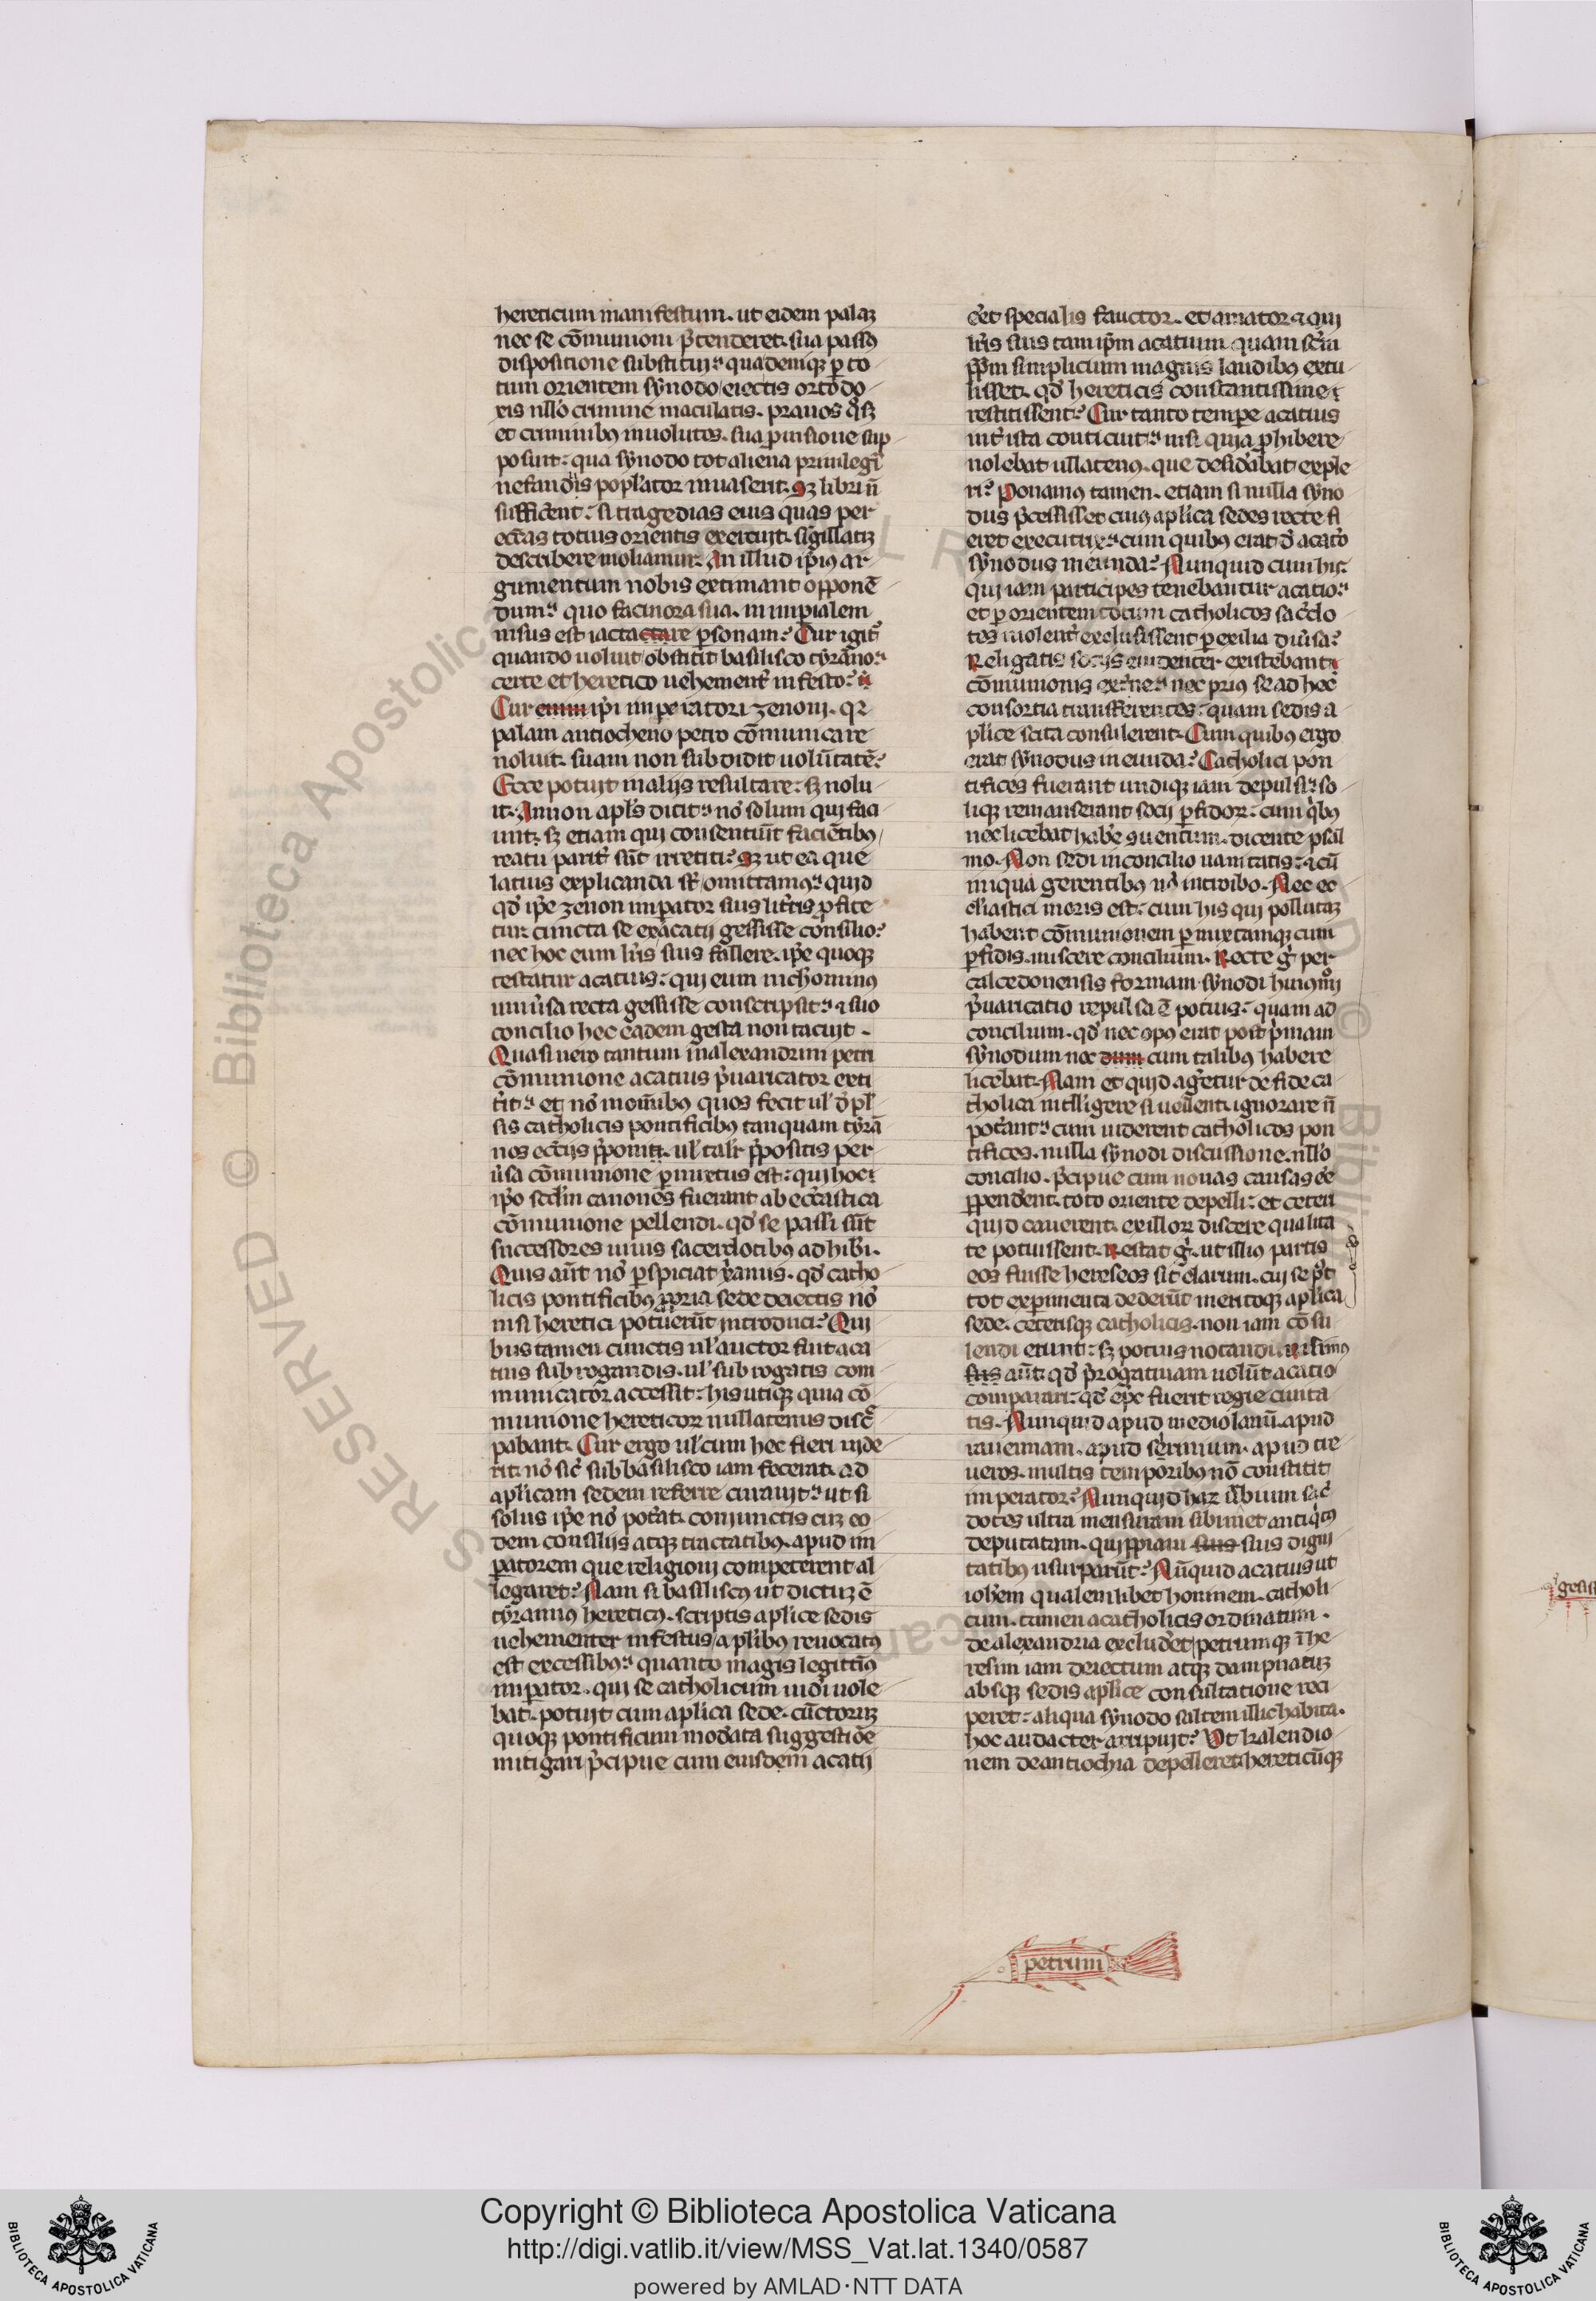 hereticum manifestum. ut eidem palaꝫ
nec se cōmunioni p̄tenderet. sua passꝰ
dispositione substitui: quademqꝫ ꝑ to
tum orientem synodo eiectis ortodo
xis nllo crimine maculatis. prauos qͦsꝫ
et criminibꝰ inuolutos. sua ꝑuisione sup
posuit: qua synodo tot aliena priuilegi
nefandis poplator inuaserit. Sꝫ libri n̄
sufficent: si tragedias eius quas per
eccl̄as totius orientis exercuit. sigillatiꝫ
describere moliamur. An illud ip̄ius ar
gumentum nobis extimant opponē
dum: quo facinora sua. in imꝑialem
nisus est iactactare ꝑsonam? Cur igit͛
quando uoluit obstitit basilisco tyrāno:
certe et heretico uehement͛ infesto?
Cur enim ip̄i imperatori zenoni. qꝛ
palam antiocheno petro cōmunicare
noluit. suam non subdidit uolūtatē?
Ecce potuit malijs resultare: sꝫ nolu
it. An non apl̄s dicit: nō solum qui faci
unt. sꝫ etiam qui consentiūt faciētibꝰ
reatu parit͛ sūt irretiti? Sꝫ ut ea que
latius explicanda sūt omittamꝰ: quid
qd̄ ip̄e zenon imꝑator suis litt͛is ꝓfite
tur cuncta se ex acatij gessisse consilio?
nec hoc eum lr̄is suis fallere. ip̄e quoqꝫ
testatur acatius: qui eum nichominus
uniu͛sa recta gessisse conscripsit: ⁊ suo
concilio hec eadem gesta non tacuit.
Quasi uero tantum in alexandrini petri
cōmunione acatius p̄uaricator exti
t͛it: et nō in omībꝰ quos fecit ul̓ d̓ pl̓
sis catholicis pontificibꝰ tanquam tyrā
nos ecc͛ijs p̄ponit. ul̓ talr̓ p̄positis per
u͛sa cōmunione ꝑmixtus est: qui hoc
ip̄o sc͛d̄m canones fuerant ab ecc͛astica
cōmunione pellendi. qd̄ se passi sūt
successores uiuis sacerdotibꝰ adhib͛i.
Quis aūt nō ꝑspiciat xp̄anus. qd̄ catho
licis pontificibꝰ ꝓpria sede deiectis nō
nisi heretici potuerūt introduci? Qui
bus tamen cunctis ul̓ auctor fuit aca
tius subrogandis. ul̓ subrogatis com
municator accessit: his utiqꝫ quia cō
munione hereticoꝝ nullatenus disc͛
pabant. Cur ergo ul̓ cum hec fieri uide
rit: nō sic̓ sub basilisco iam fecerat. ad
apl̄icam sedem referre curauit: ut si
solus ip̄e nō pot͛at. coniunctis cuꝫ eo
dem consilijs atqꝫ tractatibꝰ. apud im
ꝑatorem que religioni competerent al
legaret? Nam si basiliscꝰ ut dictuꝫ ē
tyrannꝰ hereticꝰ. scriptis apl̄ice sedis
uehementer infestus apl̄ibꝰ reuocatꝰ
est excessibꝰ: quanto magis legittimꝰ
imꝑator. qui se catholicum uid͛i uole
bat. potuit cum apl̄ica sede. cūctoruꝫ
quoqꝫ pontificum mod͛ata suggestiōe
mitigari p̄cipue cum eiusdem acatij
eēt specialis fauctor. et amator ⁊ qui
lr̄is suis tam ip̄m acatium quam sc̄m
pp̄m simplicium magnis laudibꝰ extu
lisset. qd̄ hereticis constantissime
restitissent? Cur tanto tempe acatius
int͛ ista conticuit: nisi quia ꝓhibere
nolebat ullatenꝰ. que desid͛abat exple
ri? Ponamꝰ tamen. etiam si nulla syno
dus p̄cessisset cuiꝰ apl̄ica sedes recte fi
eret executrix: cum quibꝰ erat d̓ acatō
synodus ineunda? Nunquid cum hijs
qui iam participes tenebantur acatio:
et ꝑ orientem totum catholicos sac͛do
tes uiolent͛ exclusissent ꝑ exilia diu͛sa?
Religatis socijs euidenter existebant
cōmunionis ext͛ne: nec priꝰ se ad hec
consortia transferentes: quam sedis a
pl̄ice scita consulerent. Cum quibꝰ ergo
erat synodus ineunda? Catholici pon
tifices fuerant undiqꝫ iam depulsi: so
liqꝫ remanserant socij ꝑfidoꝝ: cum qͥbꝰ
nec licebat hab͛e ꝯuentum. dicente psal
mo. Non sedi in concilio uanitatis: ⁊ cū
iniqua gerentibꝰ nō introibo. Nec ec
cl̄iastici moris est: cum his qui pollutaꝫ
habent cōmunionem ꝑmixtamqꝫ cum
ꝑfidis. miscere concilium. Recte gͦ per
calcedonensis formam synodi huiꝰmōi
p̄uaricatio repulsa ē potius: quam ad
concilium. qd̄ nec opꝰ erat post p̓mam
synodum nec dum cum talibꝰ habere
licebat. Nam et quid ag͛etur de fide ca
tholica intelligere si uellent. ignorare n̄
pot͛ant: cum uiderent catholicos pon
tifices. nulla synodi discussione. nllo
concilio. p̄cipue cum nouas causas eēe
ꝑpend͛ent. toto oriente depelli: et ceteri
quid cauerent. ex illoꝝ discere qualita
te potuissent. Restat gͦ. ut illiꝰ partis
eos fuisse hereseos sit clarum. cui se p͛t
tot exꝑimenta dederūt. meritoqꝫ apl̄ica
sede. ceterisqꝫ catholicis. non iam cōsu
lendi erunt: sꝫ potius notandi. Risimꝰ
sus aūt. qd̄ p̄rogatiuam uolūt acatio
comparari: qd̄ ep̄c fuerit regie ciuita
tis. Nunquid apud mediolanū. apud
rauennam. apud sermium. apud tre
ueros. multis temporibꝰ nō constitit
imperator? Nunquid haꝝ urbium sac͛
dotes ultra mensuram sibimet antiqͥtꝰ
deputatam. quippiam suis suis digni
tatibꝰ usurparūt? Nūquid acatius ut
ioh͛em qualemlibet hominem. catholi
cum. tamen a catholicis ordinatum.
de alexandria excludēt petrumqꝫ ī he
resim iam deiectum atqꝫ dampnatuꝫ
absqꝫ sedis apl̄ice consultatione reci
peret: aliqua synodo saltem illic habita.
hoc audacter arripuit? Ut kalendio
nem de antiochia depelleret. hereticūqꝫ
petrum
Copyright © Biblioteca Apostolica Vaticana
http://digi.vatlib.it/view/MSS_Vat.lat.1340/0587
powered by AMLAD·NTT DATA
BIBLIOTECA APOSTOLICA VATICANA
BIBLIOTECA APOSTOLICA VATICANA